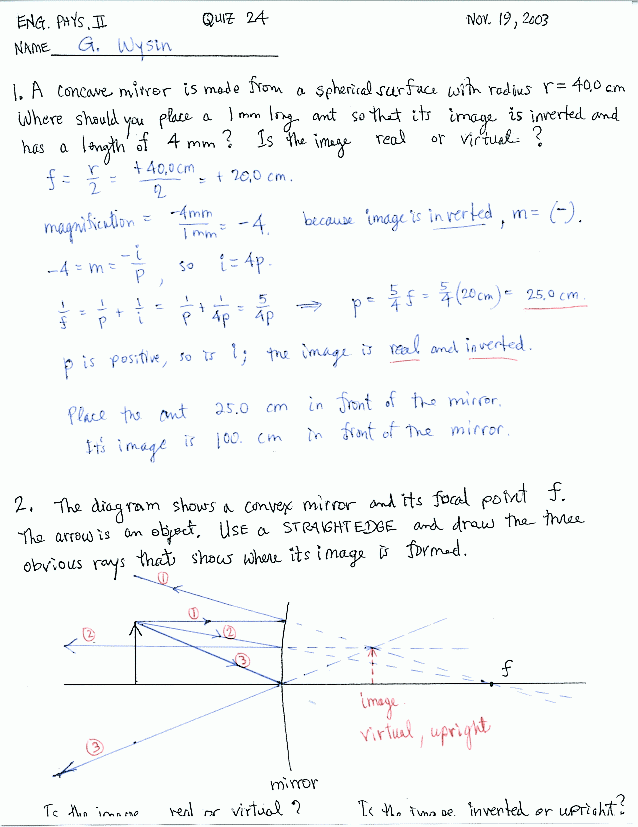 ENG. PHYS. II QUIZ 24 NOV. 19, 2003
NAME G. Wysin
1. A concave mirror is made from a spherical surface with radius r = 40.0 cm
Where should you place a 1 mm long ant so that its image is inverted and
has a length of 4 mm? Is the image real or virtual?
f = r/2 = +40.0cm/2 = + 20.0 cm.
magnification = -4mm/1mm = -4. because image is inverted, m = (-).
-4 = m = -i/p, so i = 4p.
1/f = 1/p + 1/i = 1/p + 1/4p = 5/4p ⇒ p = 5/4 f = 5/4 (20cm) = 25.0 cm.
p is positive, so is i; the image is real and inverted.
Place the ant 25.0 cm in front of the mirror.
It's image is 100. cm in front of the mirror.
2. The diagram shows a convex mirror and its focal point f.
The arrow is an object. USE a STRAIGHTEDGE and draw the three
obvious rays that show where its image is formed.
①
①
②
②
③
f
image
virtual, upright
③
mirror
Is the image real or virtual? Is the image inverted or upright?